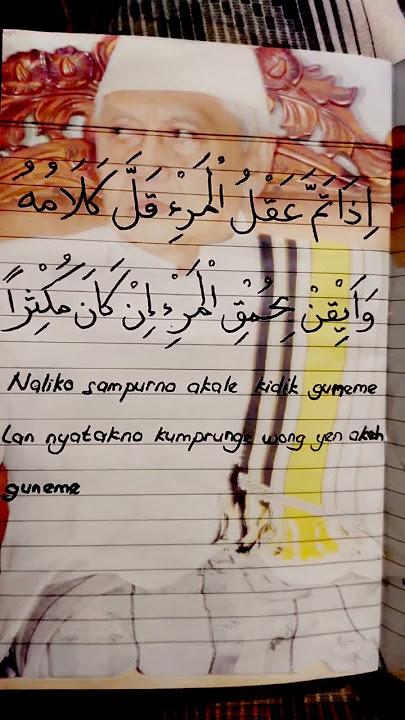 إِذَا تَمَّ عَقْلُ الْمَرْءِ قَلَّ كَلَامُهُ
وَاَيْقِنْ بِحُمْقِ الْمَرْءِ إِنْ كَانَ مُكْثِرًا
Naliko sampurno akale kidik guneme
Lan nyatakno kumprunge wong yen akeh
guneme